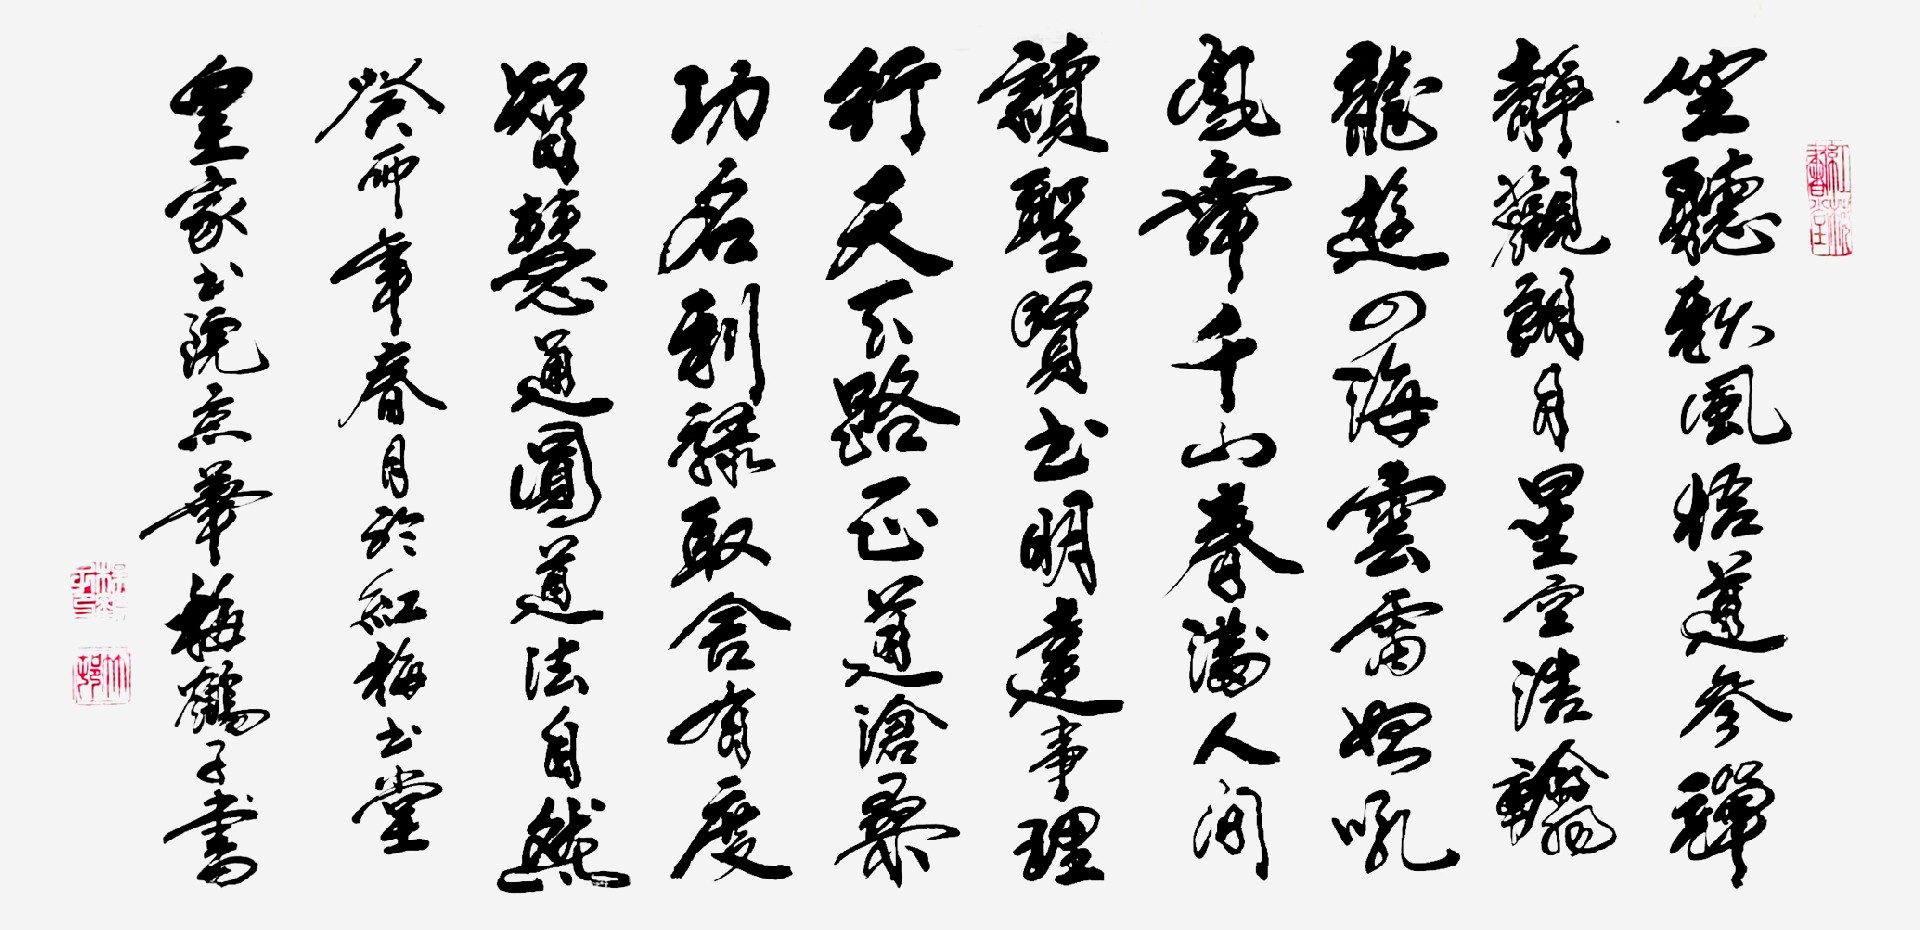 紅梅書堂
坐聽秋風悟道參禪
靜觀朗月星空浩瀚
龍遊四海雲雷怒吼
鳳舞千山春滿人間
讀聖賢书明達事理
行天下路正道滄桑
功名利祿取舍有度
智慧通圓道法自然
癸卯年春月於紅梅书堂
皇家书院京華梅鶴子書